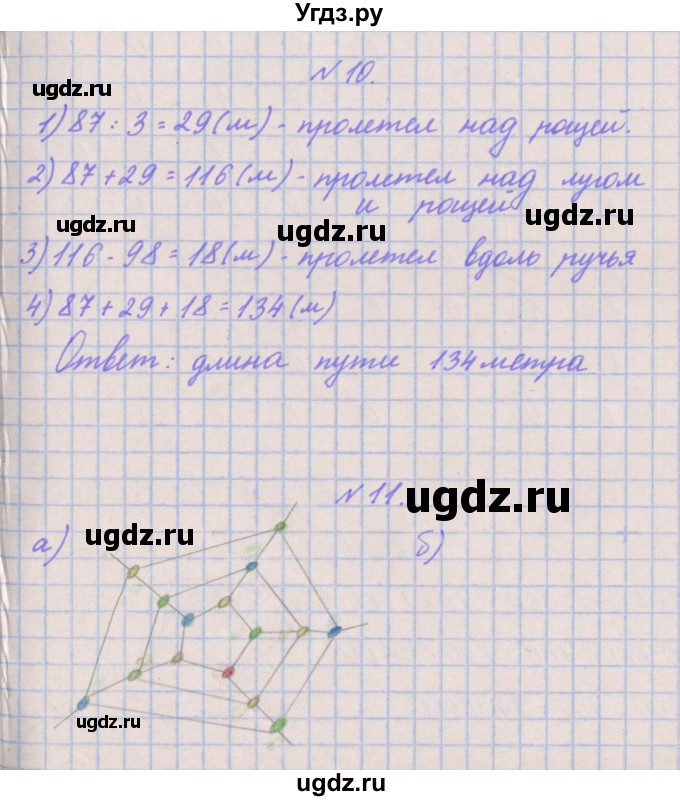 Угдз.ру
№ 10.
ugdz.ru
1) 87 : 3 = 29 (м) - пролетел над рощей.
2) 87 + 29 = 116 (м) - пролетел над лугом
и рощей
ugdz.ru
ugdz.ru
ugdz.ru
3) 116 - 98 = 18 (м) - пролетел вдоль ручья
4) 87 + 29 + 18 = 134 (м)
Ответ: длина пути 134 метра
№ 11.
ugdz.ru
а)
ugdz.ru
б)
ugdz.ru
ugdz.ru